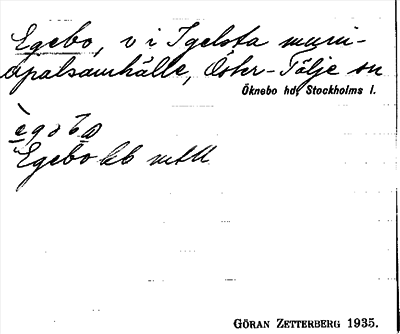 Egebo, v i Igelsta muni-
cipalsamhälle, Öster-Tälje sn
Öknebo hd, Stockholms l.
ègǝbo
Egebo kb
GÖRAN ZETTERBERG 1935.